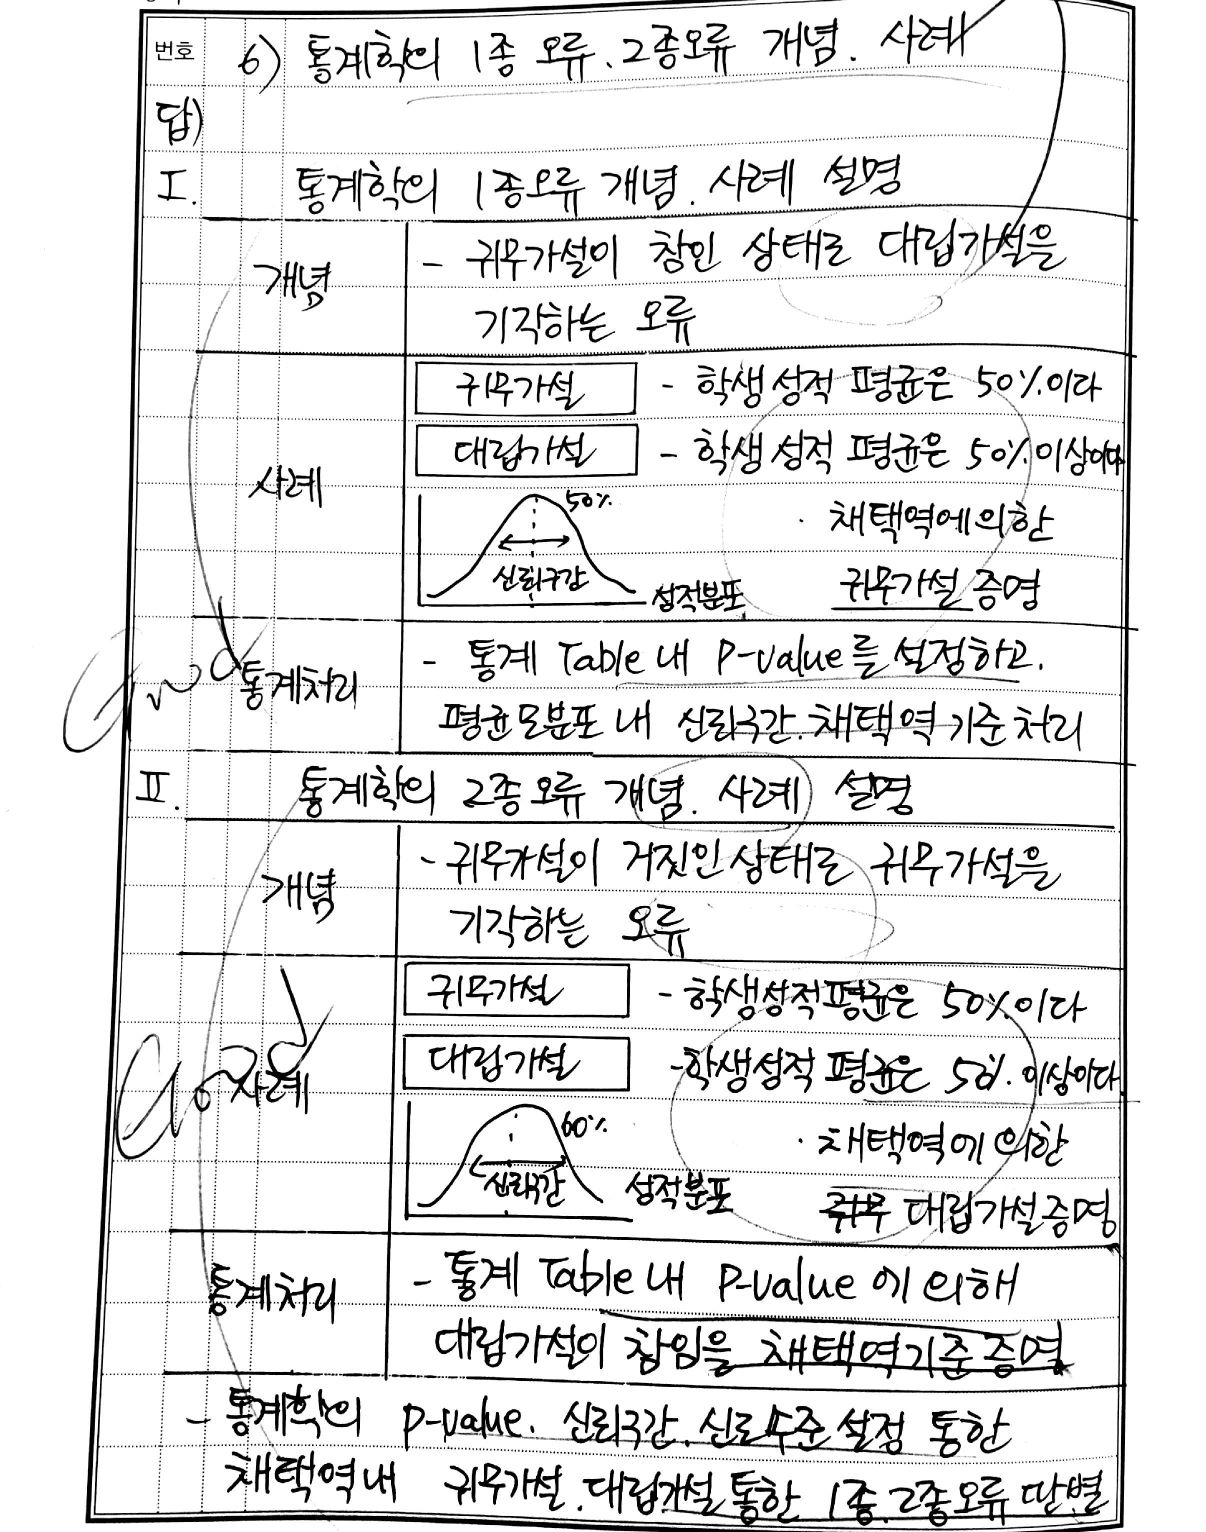 번호 6) 통계학의 1종 오류. 2종오류 개념. 사례
답)
I. 통계학의 1종오류 개념. 사례 설명
개념 - 귀무가설이 참인 상태로 대립가설을
기각하는 오류
귀무가설 - 학생성적 평균은 50%이다
사례 대립가설 - 학생성적 평균은 50%이상이다
50% · 채택역에 의한
신뢰구간 성적분포 귀무가설 증명
통계처리 - 통계 Table 내 P-value를 설정하고.
평균모분포 내 신뢰구간. 채택역 기준 처리
II. 통계학의 2종오류 개념. 사례 설명
개념 - 귀무가설이 거짓인 상태로 귀무가설을
기각하는 오류
귀무가설 - 학생성적평균은 50%이다
사례 대립가설 - 학생성적 평균은 50%. 이상이다.
60% · 채택역에 의한
신뢰구간 성적분포 귀무 대립가설증명
통계처리 - 통계 Table 내 P-value에 의해
대립가설이 참임을 채택역기준 증명
- 통계학의 P-value. 신뢰구간. 신뢰수준 설정 통한
채택역 내 귀무가설. 대립가설 통한 1종. 2종오류 판별